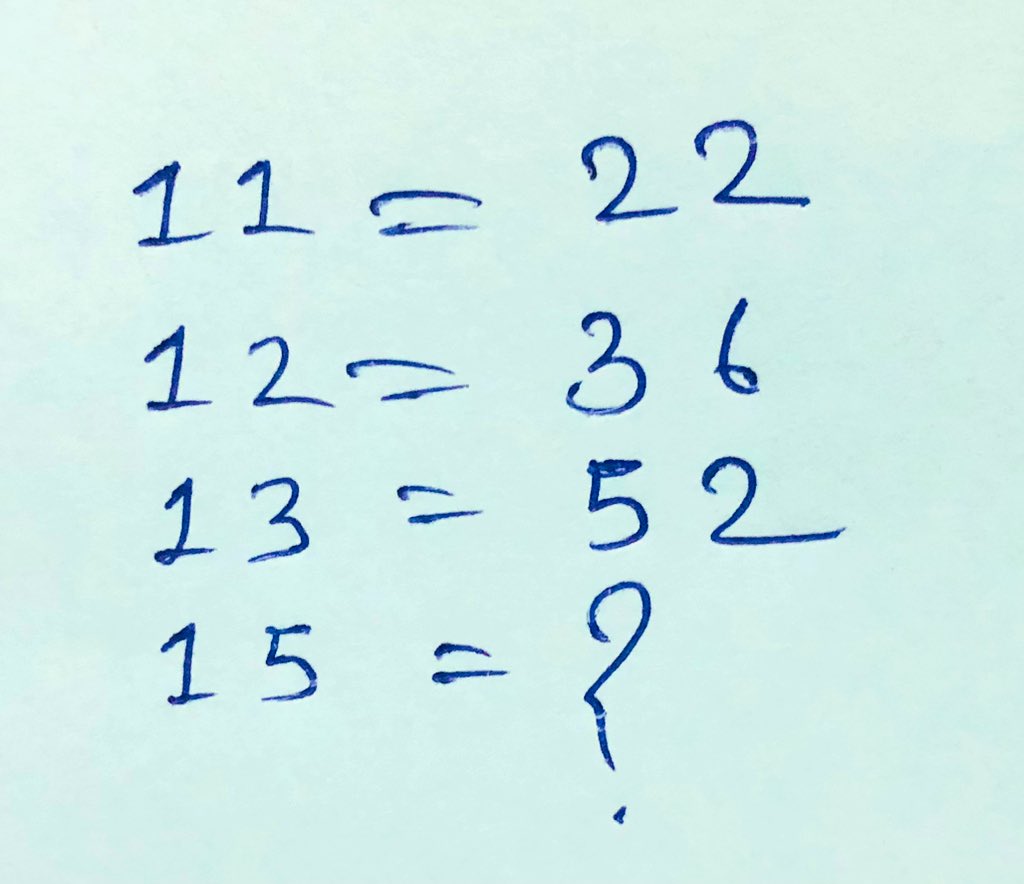 11 = 22
12 = 36
13 = 52
15 = ?